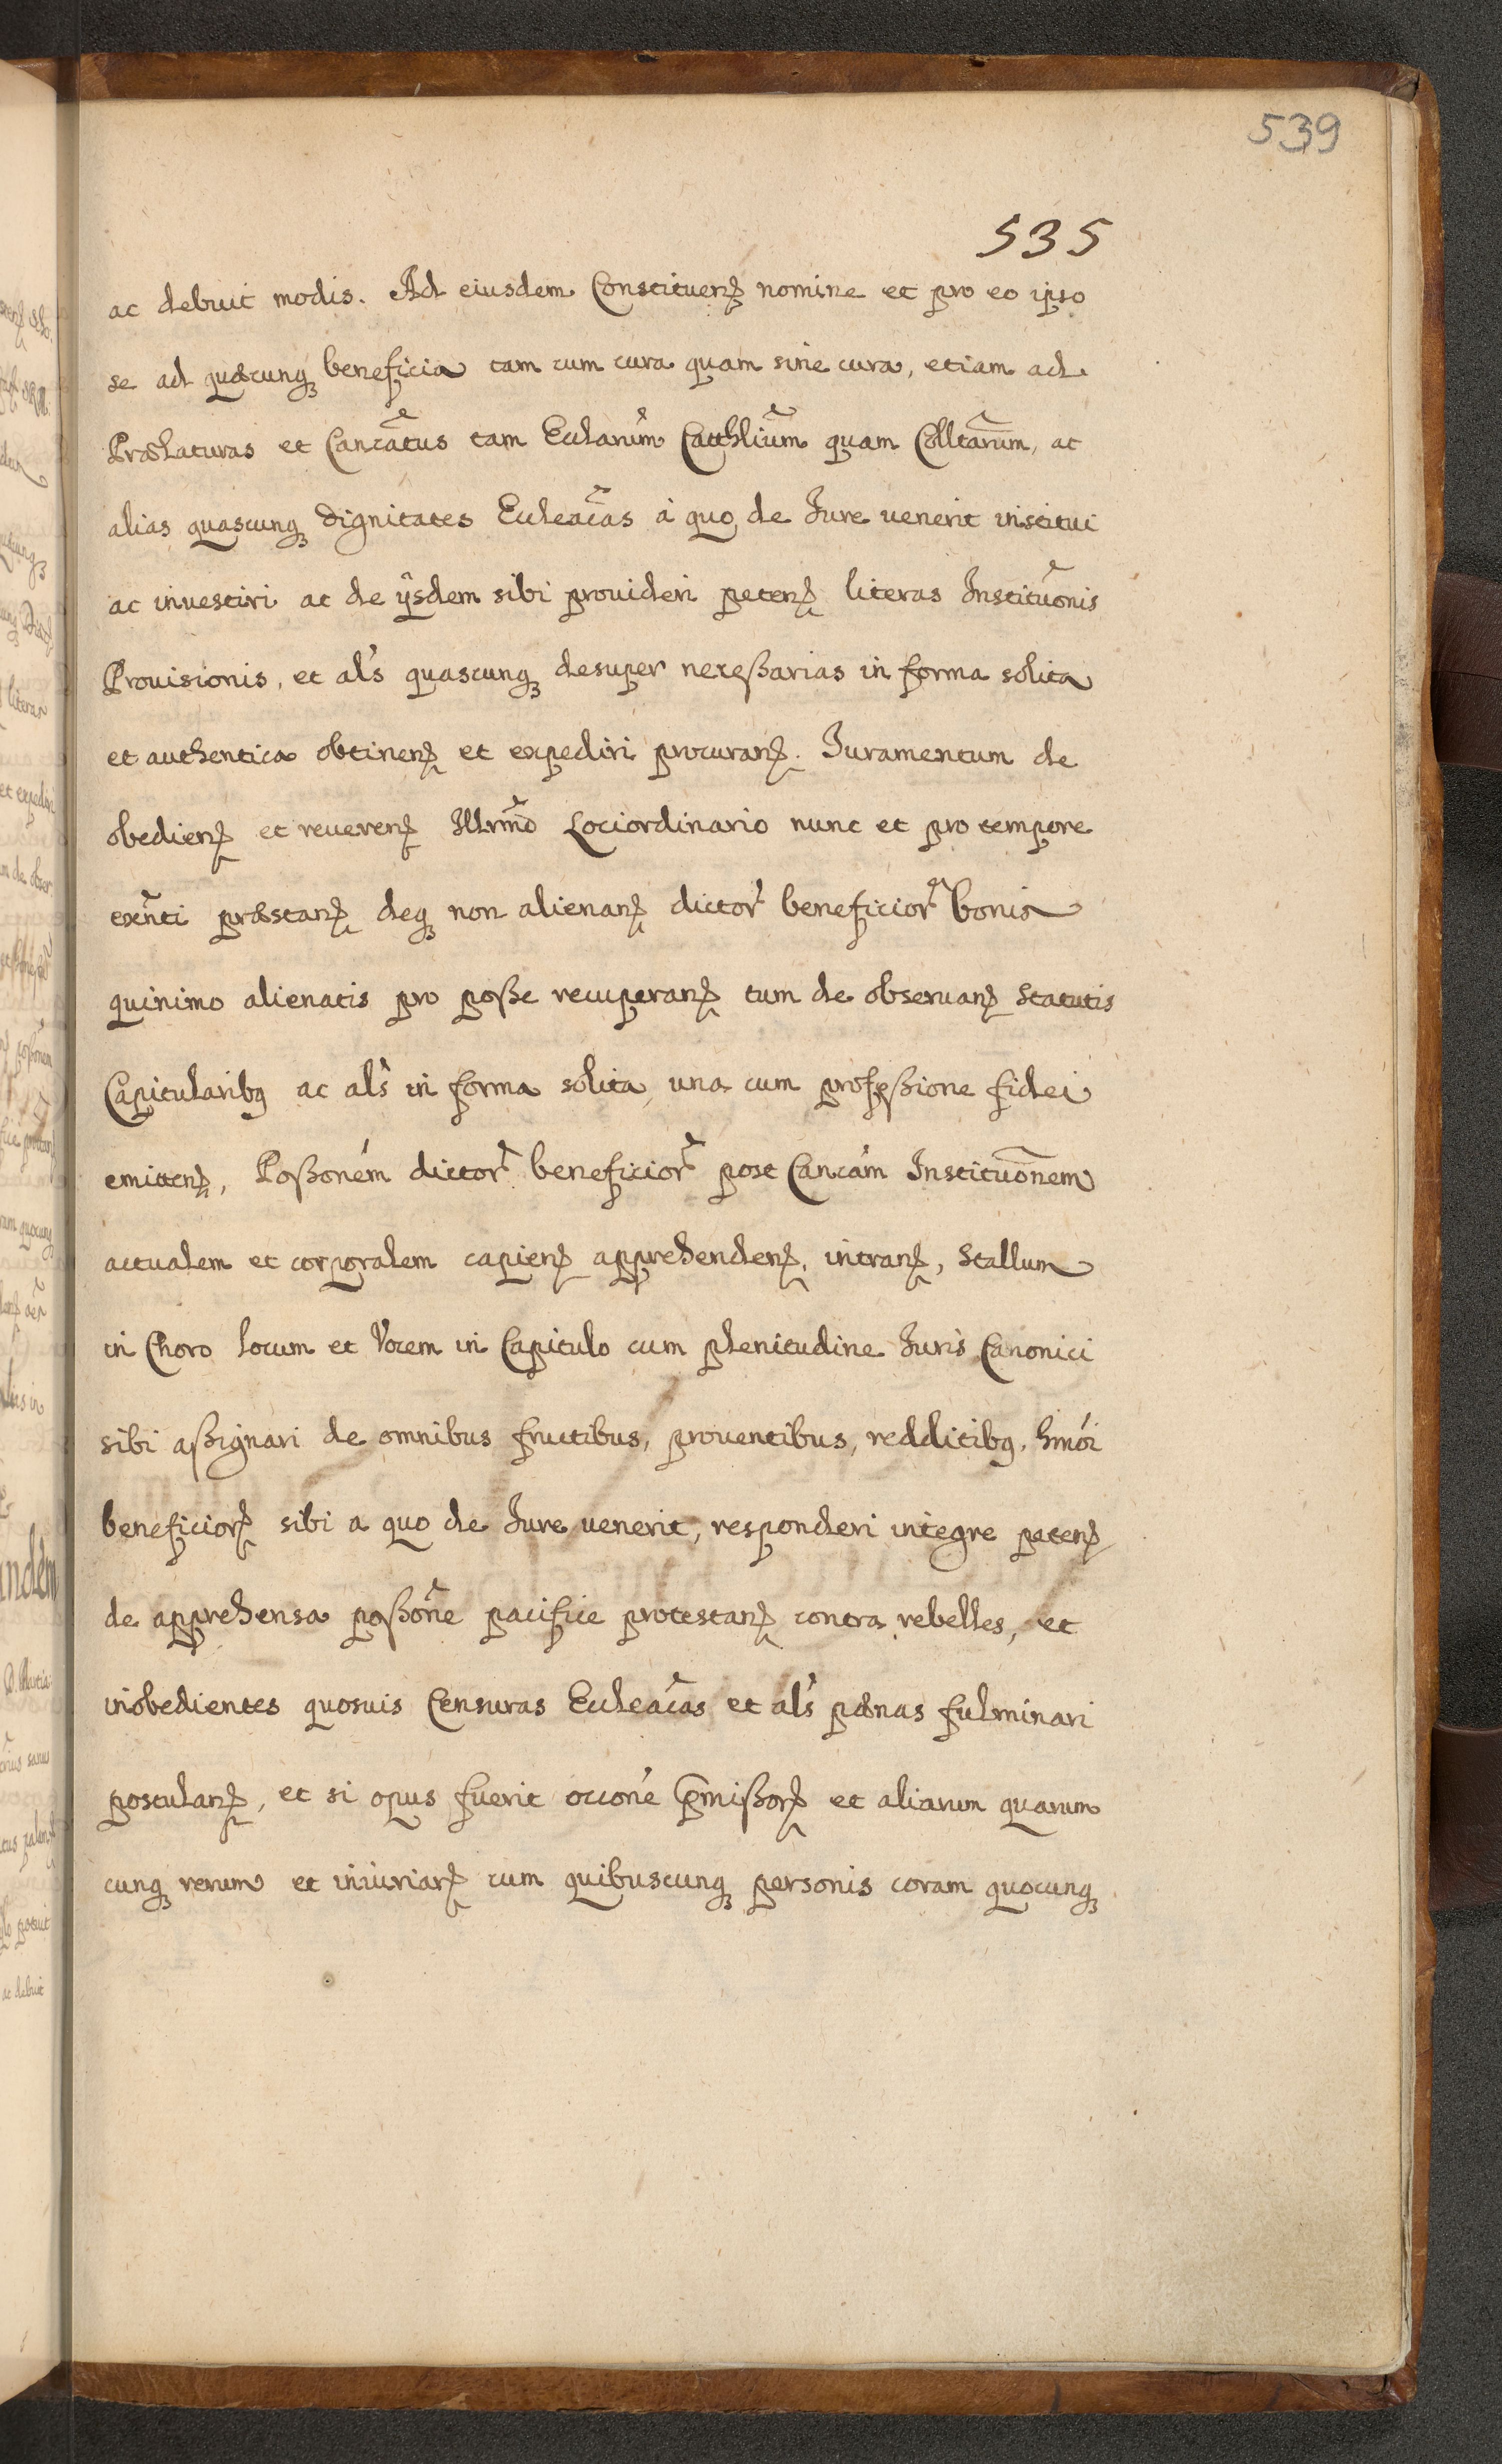 539
535
ac debuit modis. Ad eiusdem Constituenꝭ nomine et pro eo ipso
se ad quæcunqꝫ beneficia tam cum cura quam sine cura, etiam ad
Prælaturas et Cancãtus tam Eccłarum̃ Catthliũm quam Colltãrum, ac
alias quascunqꝫ dignitates Eccłeacãs à quo de Jure uenerit institui
ac inuestiri ac de ÿsdem sibi prouideri petenꝭ literas Instituõnis
Prouisionis, et als̀ quascunqꝫ desuper neceßarias in forma solita
et authentica obtinenꝭ et expediri procuranꝭ. Juramentum de
obedienꝭ et reuerenꝭ Illrm̃o Lociordinario nunc et pro tempore
exñti præstanꝭ deqꝫ non alienanꝭ dictor̃ beneficior̃ bonis
quinimo alienatis pro poße recuperanꝭ tum de obseruanꝭ Statutis
Capitularibꝰ ac als̀ in forma solita, una cum profeßione fidei
emittenꝭ, Poßoném dictor̃ beneficior̃ post Cancám Instituõnem
actualem et corporalem capienꝭ apprehendenꝭ, intranꝭ, Stallum
in Choro locum et Vocem in Capitulo cum plenitudine Juris Canonici
sibi aßignari de omnibus fructibus, prouentibus, redditibꝰ, hmói
beneficiorꝭ sibi a quo de Jure uenerit, responderi integre petenꝭ
de apprehensa poßoñe pacifice protestanꝭ contra rebelles, et
inobedientes quosuis Censuras Eccłeacãs et als̀ pænas fulminari
postulanꝭ, et si opus fuerit occoné p̃mißorꝭ et aliarum quarum
cunqꝫ rerum et iniuriarꝭ cum quibuscunqꝫ personis coram quocunqꝫ